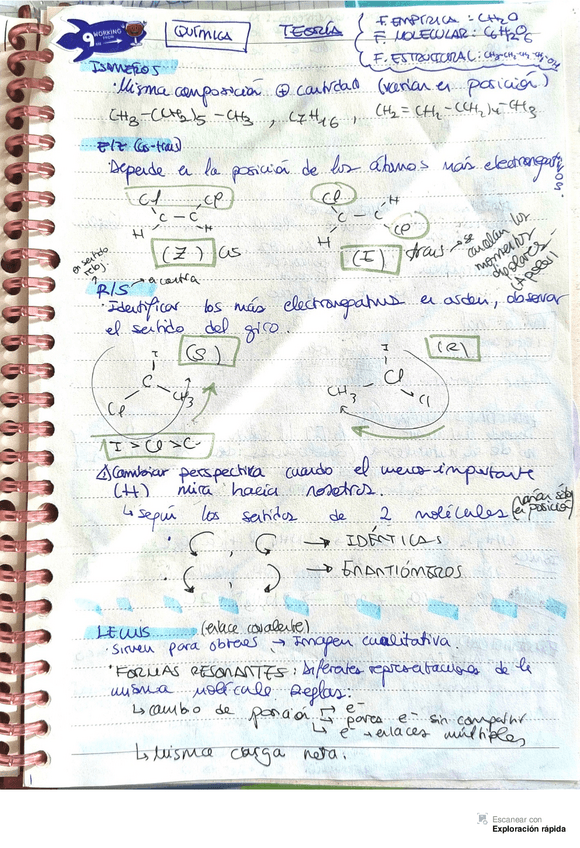 9 WORKING
QUÍMICA
TEORÍA
F. EMPÍRICA : CH₂O
F. MOLECULAR : C₆H₂O₆
F. ESTRUCTURAL : CH₃-CH₂-CH₂-CH₂-OH
ISÓMEROS
· Misma composición ⊕ cantidad (varían en posición)
CH₃-(CH₂)₅-CH₃ , C₇H₁₆ , CH₂=CH₂-(CH₂)₄-CH₃
E/Z (cis-trans)
· Depende en la posición de los átomos más electronegativos.
Cl Cl Cl H
C - C C - C
H H H Cl
(Z) cis (E) trans → se cancelan los momentos dipolares
en sentido reloj
R/S → a contra
· Identificar los más electronegativos en orden, observar
el sentido del giro.
I (S) I (R)
C Cl
Cl CH₃ CH₃ Cl
I > Cl > C
⚠ Cambiar perspectiva cuando el menos importante
(H) mira hacia nosotros.
↳ según los sentidos de 2 moléculas (varían sólo en posición)
· , → IDÉNTICAS
· , → ENANTIÓMEROS
LEWIS (enlace covalente)
· Sirven para obtener → Imagen cualitativa.
· FORMAS RESONANTES: Diferentes representaciones de la
misma molécula Reglas:
↳ cambio de posición → e⁻
↳ pares e⁻ sin compartir
↳ e⁻ → enlaces múltiples
↳ Misma carga neta.
Escanear con
Exploración rápida